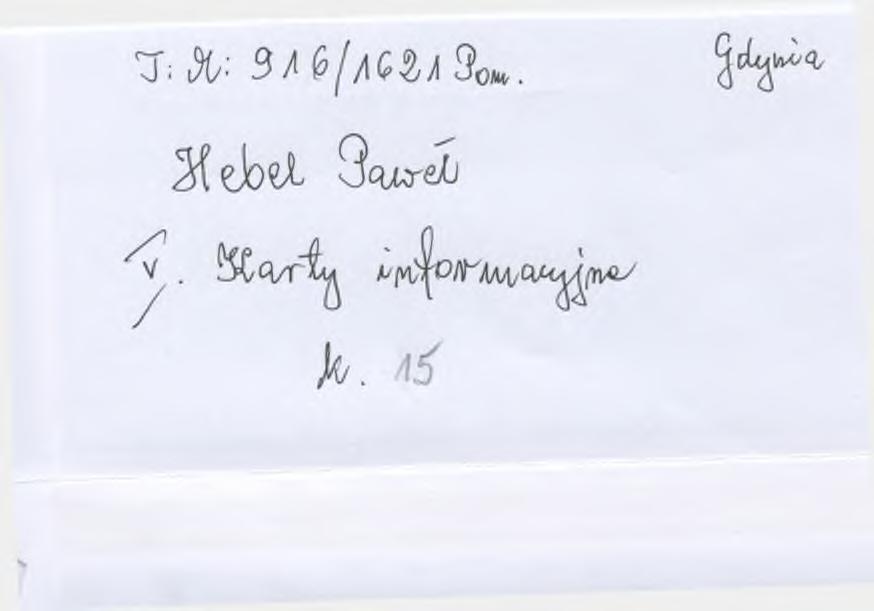 T: M: 916/1621 Pom. Gdynia
Hebel Paweł
V. Karty informacyjne
k. 15